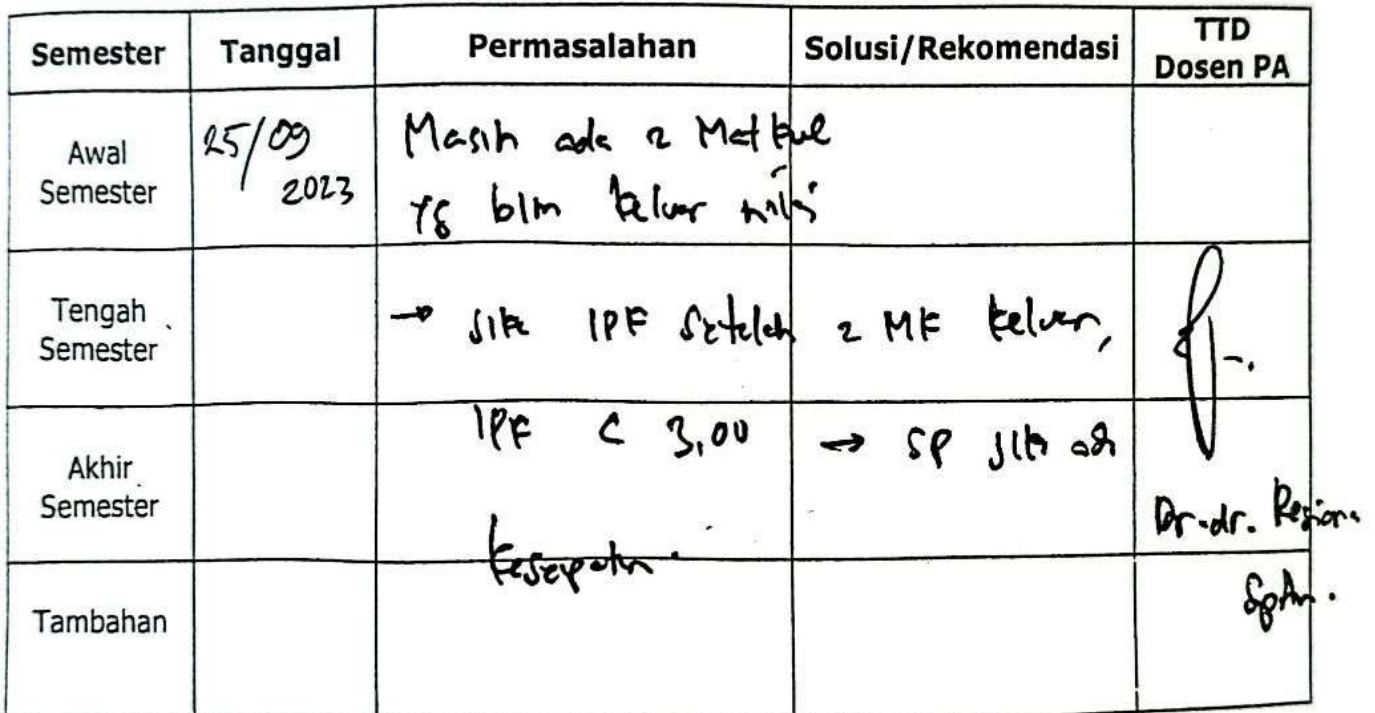 Semester Tanggal Permasalahan Solusi/Rekomendasi TTD Dosen PA
Awal Semester
25/09
2023
Masih ada 2 Matkul
yg blm keluar nilai
Tengah Semester
→ jika IPK setelah 2 MK keluar,
Akhir Semester
IPK < 3,00 → SP jika ada
kesepatan.
Dr. dr. Regiana
SpAn.
Tambahan